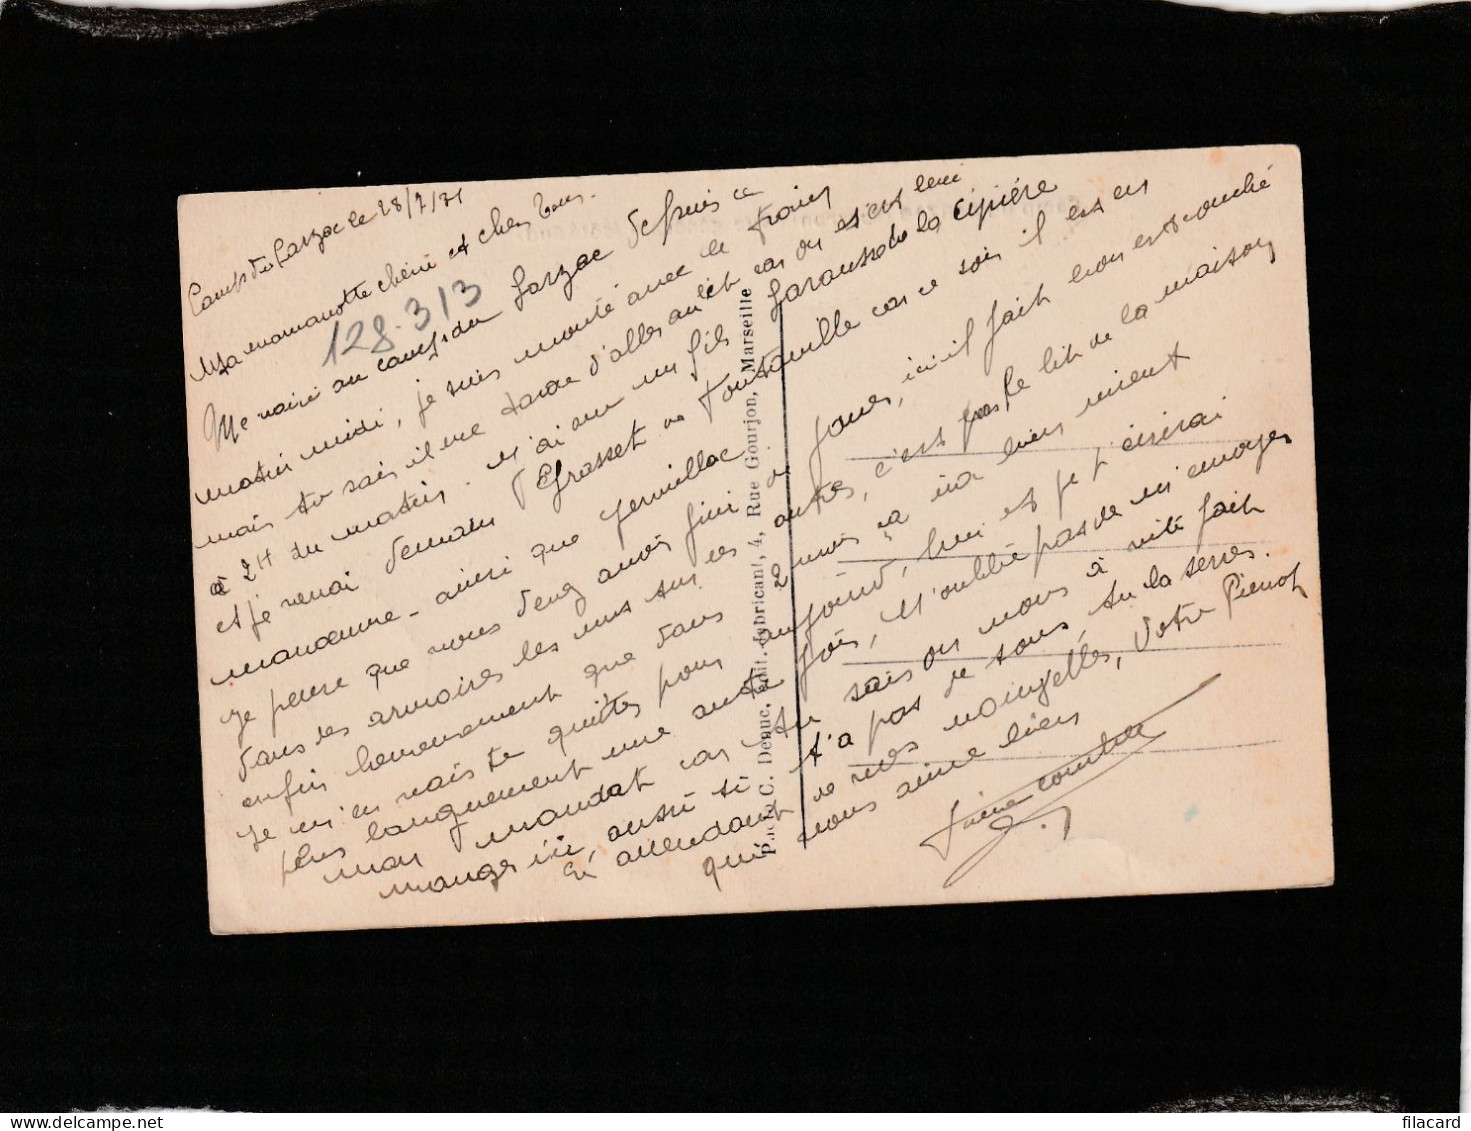 Camp du Larzac le 28/7/31
Ma mamanotte chérie et chers tous.
128-313
Me voici au camp du Larzac depuis ce
matin midi, je suis monté avec le train
mais tu sais il me tarde d'aller au lit car on s'est levé
à 2H du matin. j'ai vu un fils Laraussa de la Cipière
et je verrai demain Grasset de Fontanille car ce soir il est en
manoeuvre - ainsi que Jemillac
je pense que nous devez avoir fini de jouer, ici il fait bon est couché
dans les armoires les uns sur les autres, c'est pas le lit de la maison
enfin heureusement que dans 2 mois ça ira bien mieux
Je m'en vais te quitter pour aujourd'hui et je t'écrirai
plus longuement une autre fois, N'oublie pas de m'envoyer
mon mandat car tu sais on nous a vite fait
manger ici, aussi si t'a pas de sous, tu la serres.
En attendant de vos nouvelles, Votre Pierrot
qui vous aime bien
P. C. Deauc, édit. fabricant, 4, Rue Gourjon, Marseille